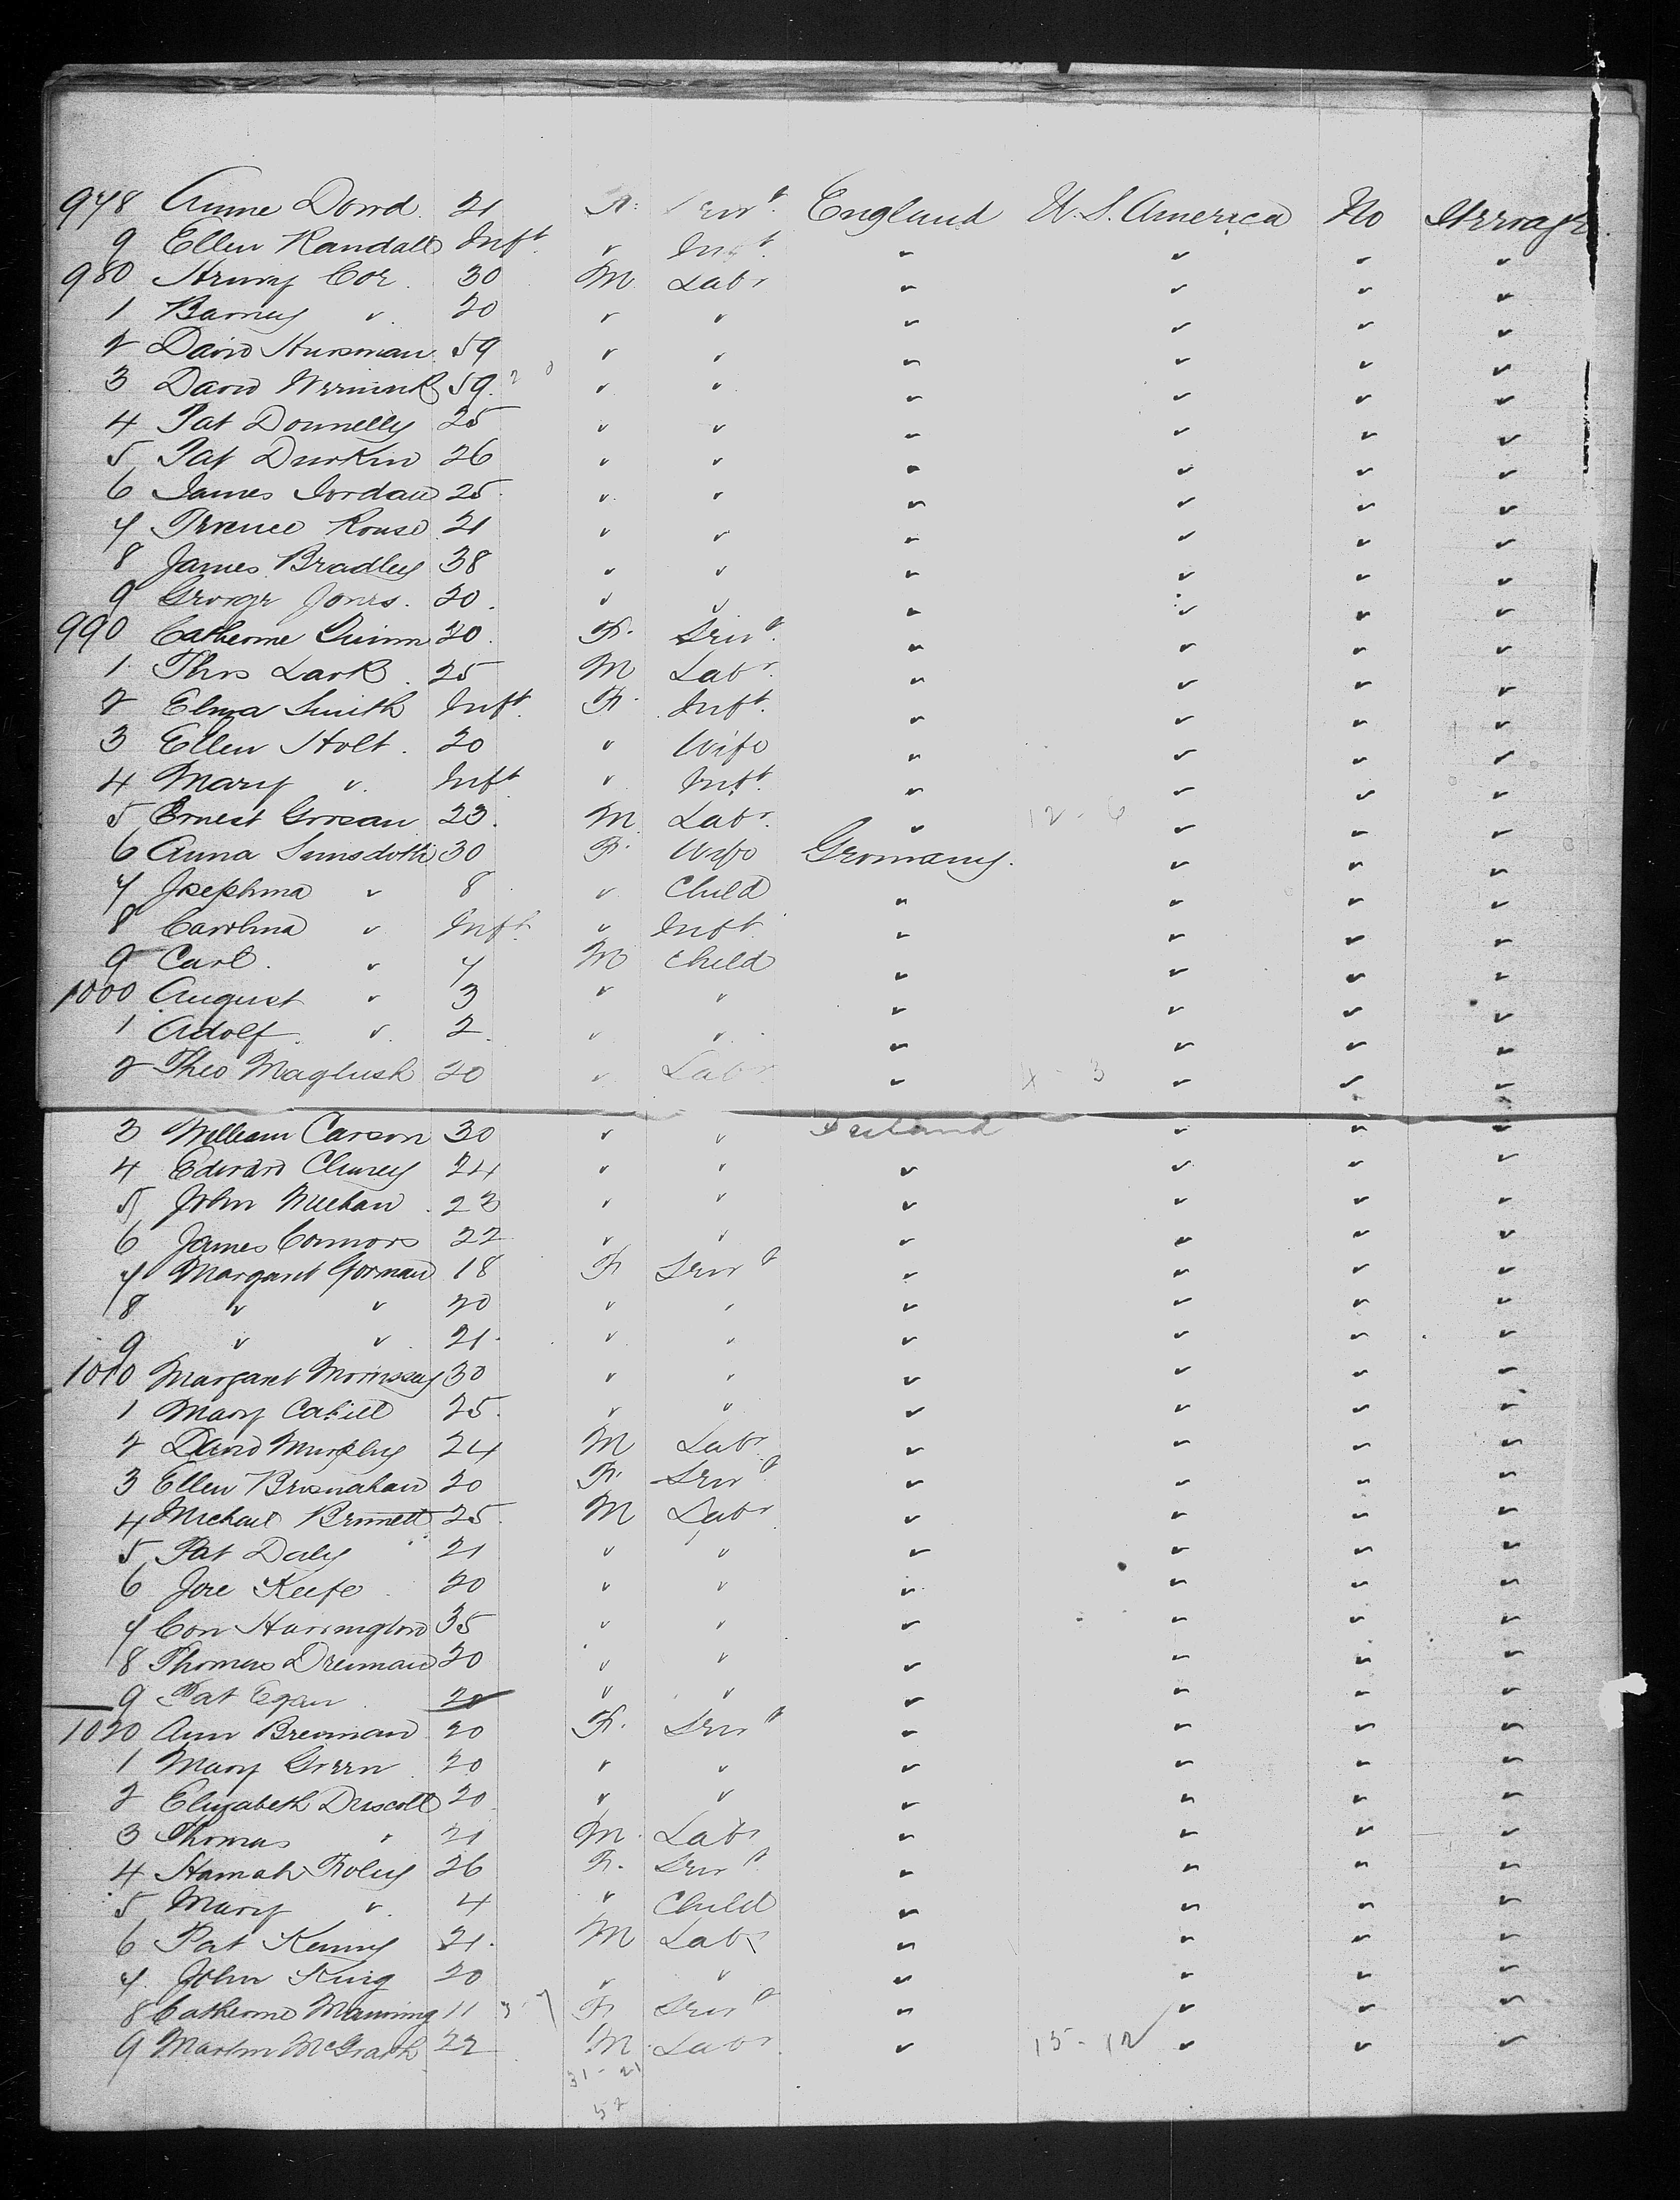 978 Anne Dowd 21 F. Servt. England U.S. America No Steerage
9 Ellen Randall Inft. " Inft. " " " "
980 Henry Cox 30 M Labr " " " "
1 Barney " 20 " " " " " "
2 David Hursman 59 " " " " " "
3 David 59 " " " " " "
4 Pat Donnelly 25 " " " " " "
5 Pat Durkin 26 " " " " " "
6 James Jordan 25 " " " " " "
7 Rouse 21 " " " " " "
8 James Bradley 38 " " " " " "
9 George Jones 20 " " " " " "
990 Catherine Quinn 20 F. Servt. " " " "
1 Thos Lark 25 M Labr " " " "
2 Eliza Smith Inft. F. Inft. " " " "
3 Ellen Holt 20 " Wife " " " "
4 Mary " Inft " Inft. " " " "
5 Ernest 23 M Labr. " 12-6 " " "
6 Anna 30 F. Wife Germany. " " "
7 Josephina " 8 " Child " " " "
8 Carolina " Inft. " Inft " " " "
9 Carl " 7 M Child " " " "
1000 August " 3 " " " " " "
1 Adolf " 2 " " " " " "
2 Theo Maglush 20 " Labr " 4-3 " " "
3 William Carson 30 " " Ireland " " "
4 Edward 24 " " " " " "
5 John Meehan 23 " " " " " "
6 James Connors 22 " " " " " "
7 Margaret Gorman 18 F Servt " " " "
8 " " 20 " " " " " "
9 " " 21 " " " " " "
1010 Margaret Morrissey 30 " " " " " "
1 Mary Cahill 25 " " " " " "
2 David Murphy 24 M Labr " " " "
3 Ellen Brosnahan 20 F. Servt " " " "
4 Michael Bennett 25 M Labr " " " "
5 Pat Daly 21 " " " " " "
6 Joe Keefe 20 " " " " " "
7 Con Harrington 35 " " " " " "
8 Thomas Drennan 20 " " " " " "
9 Pat Egan 20 " " " " " "
1020 Ann Brennan 20 F. Servt " " " "
1 Mary Green 20 " " " " " "
2 Elizabeth Driscoll 20 " " " " " "
3 Thomas " 21 M. Labr " " " "
4 Hannah Foley 26 F. Servt " " " "
5 Mary " 4 " Child " " " "
6 Pat Kenny 21 M Labr " " " "
7 John King 20 " " " " " "
8 Catherine Manning 11 F Servt " " " "
9 Martin McGrath 22 M Labr " 15-12 " " "
31-21
52